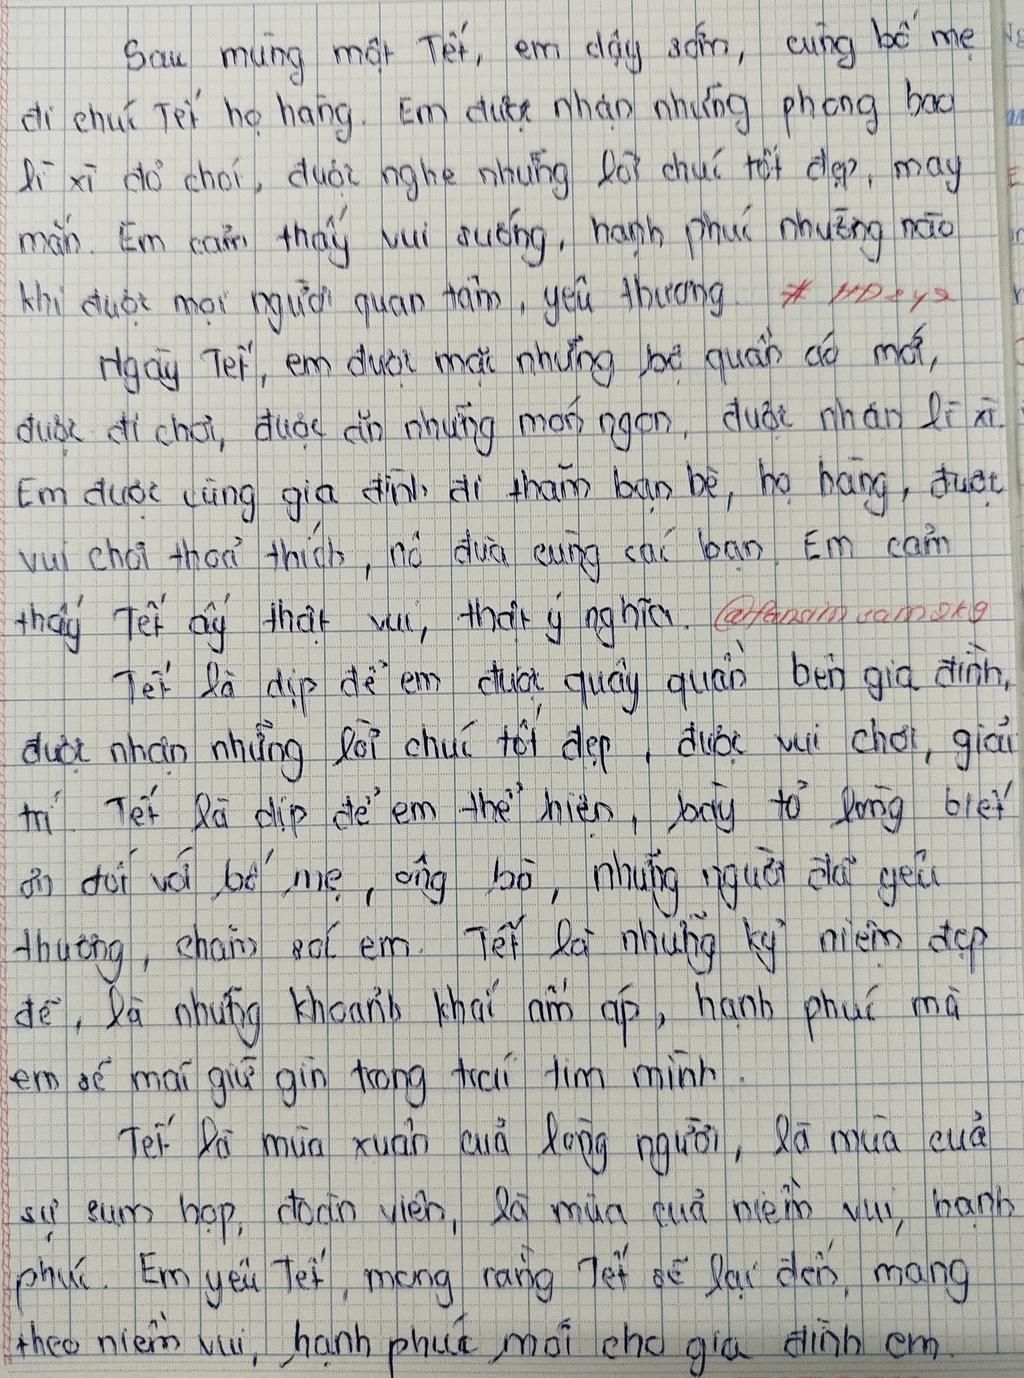 Sau mùng một Tết, em dậy sớm, cùng bố mẹ
đi chúc Tết họ hàng. Em được nhận những phong bao
lì xì đỏ chói, được nghe những lời chúc tốt đẹp, may
mắn. Em cảm thấy vui sướng, hạnh phúc nhường nào
khi được mọi người quan tâm, yêu thương.
Ngày Tết, em được mặc những bộ quần áo mới,
được đi chơi, được ăn những món ngon, được nhận lì xì.
Em được cùng gia đình đi thăm bạn bè, họ hàng, được
vui chơi thoả thích, nô đùa cùng các bạn. Em cảm
thấy Tết ấy thật vui, thật ý nghĩa.
Tết là dịp để em được quây quần bên gia đình,
được nhận những lời chúc tốt đẹp, được vui chơi, giải
trí. Tết là dịp để em thể hiện, bày tỏ lòng biết
ơn đối với bố mẹ, ông bà, những người đã yêu
thương, chăm sóc em. Tết là những kỷ niệm đẹp
đẽ, là những khoảnh khắc ấm áp, hạnh phúc mà
em sẽ mãi giữ gìn trong trái tim mình.
Tết là mùa xuân của lòng người, là mùa của
sự sum họp, đoàn viên, là mùa của niềm vui, hạnh
phúc. Em yêu Tết, mong rằng Tết sẽ lại đến, mang
theo niềm vui, hạnh phúc mới cho gia đình em.